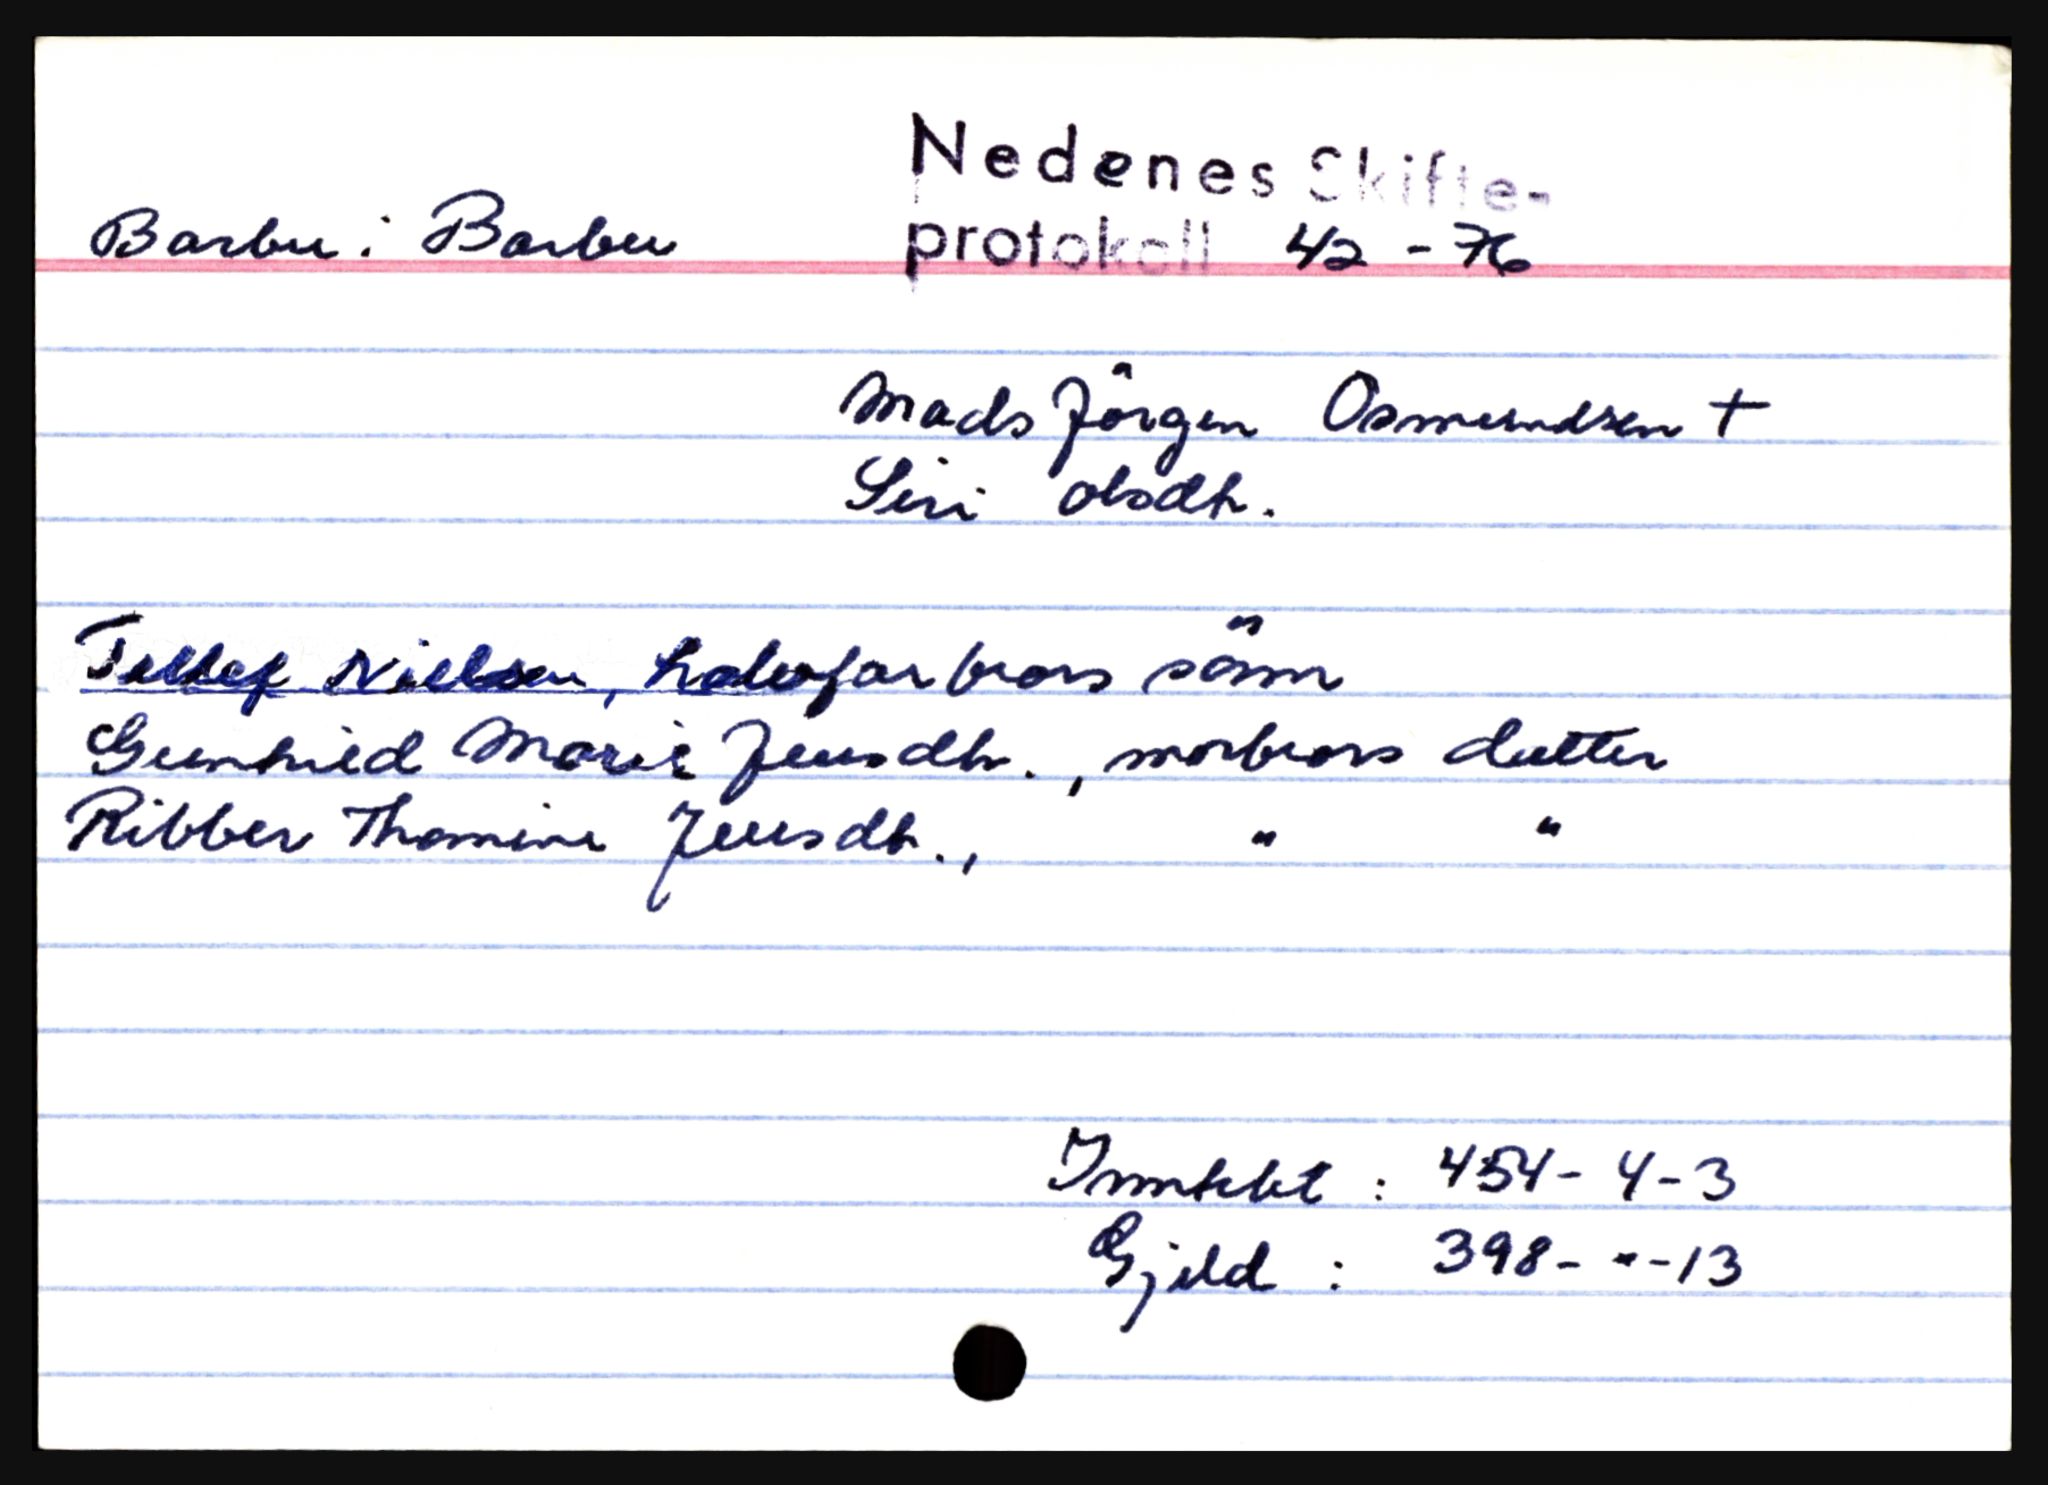 Nedenes Skifte-
Barbu: Barbu protokoll 42 - 76
Mads Jörgen Osmundsen +
Siri Olsdtr.
Tellef Nielsen, halvfarbrors sönn
Gunhild Marie Jensdtr., morbrors datter
Ribber Thomine Jensdtr., " "
Inntekt : 454 - 4 - 3
Gjeld : 398 - " - 13